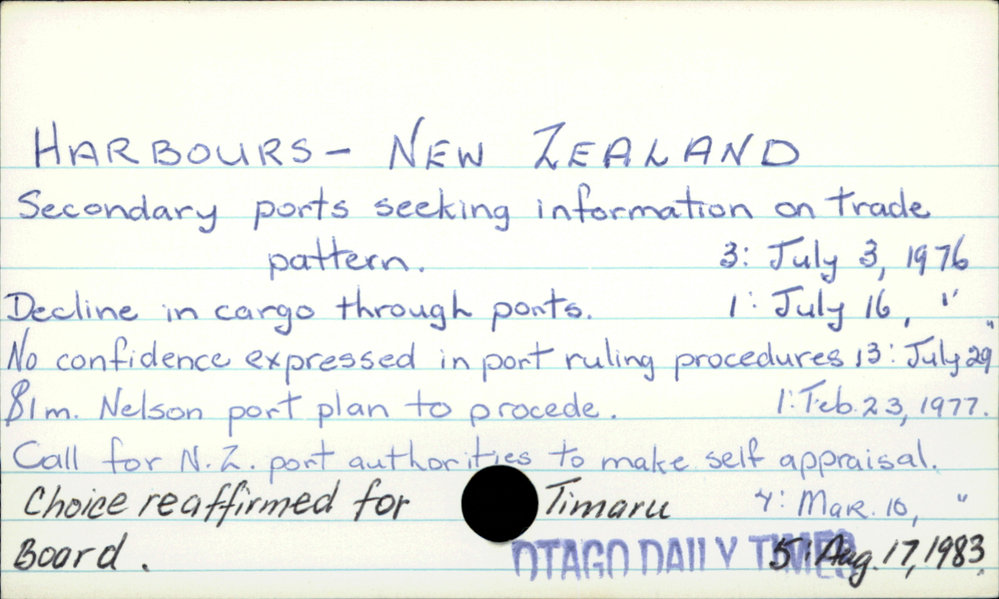 HARBOURS - NEW ZEALAND
Secondary ports seeking information on trade
pattern. 3: July 3, 1976
Decline in cargo through ports. 1: July 16, "
No confidence expressed in port ruling procedures 13: July 29 "
$1m. Nelson port plan to procede. 1: Feb. 23, 1977.
Call for N.Z. port authorities to make self appraisal.
Choice reaffirmed for Timaru 4: Mar. 10, "
Board. 5: Aug. 17, 1983.
OTAGO DAILY TIMES